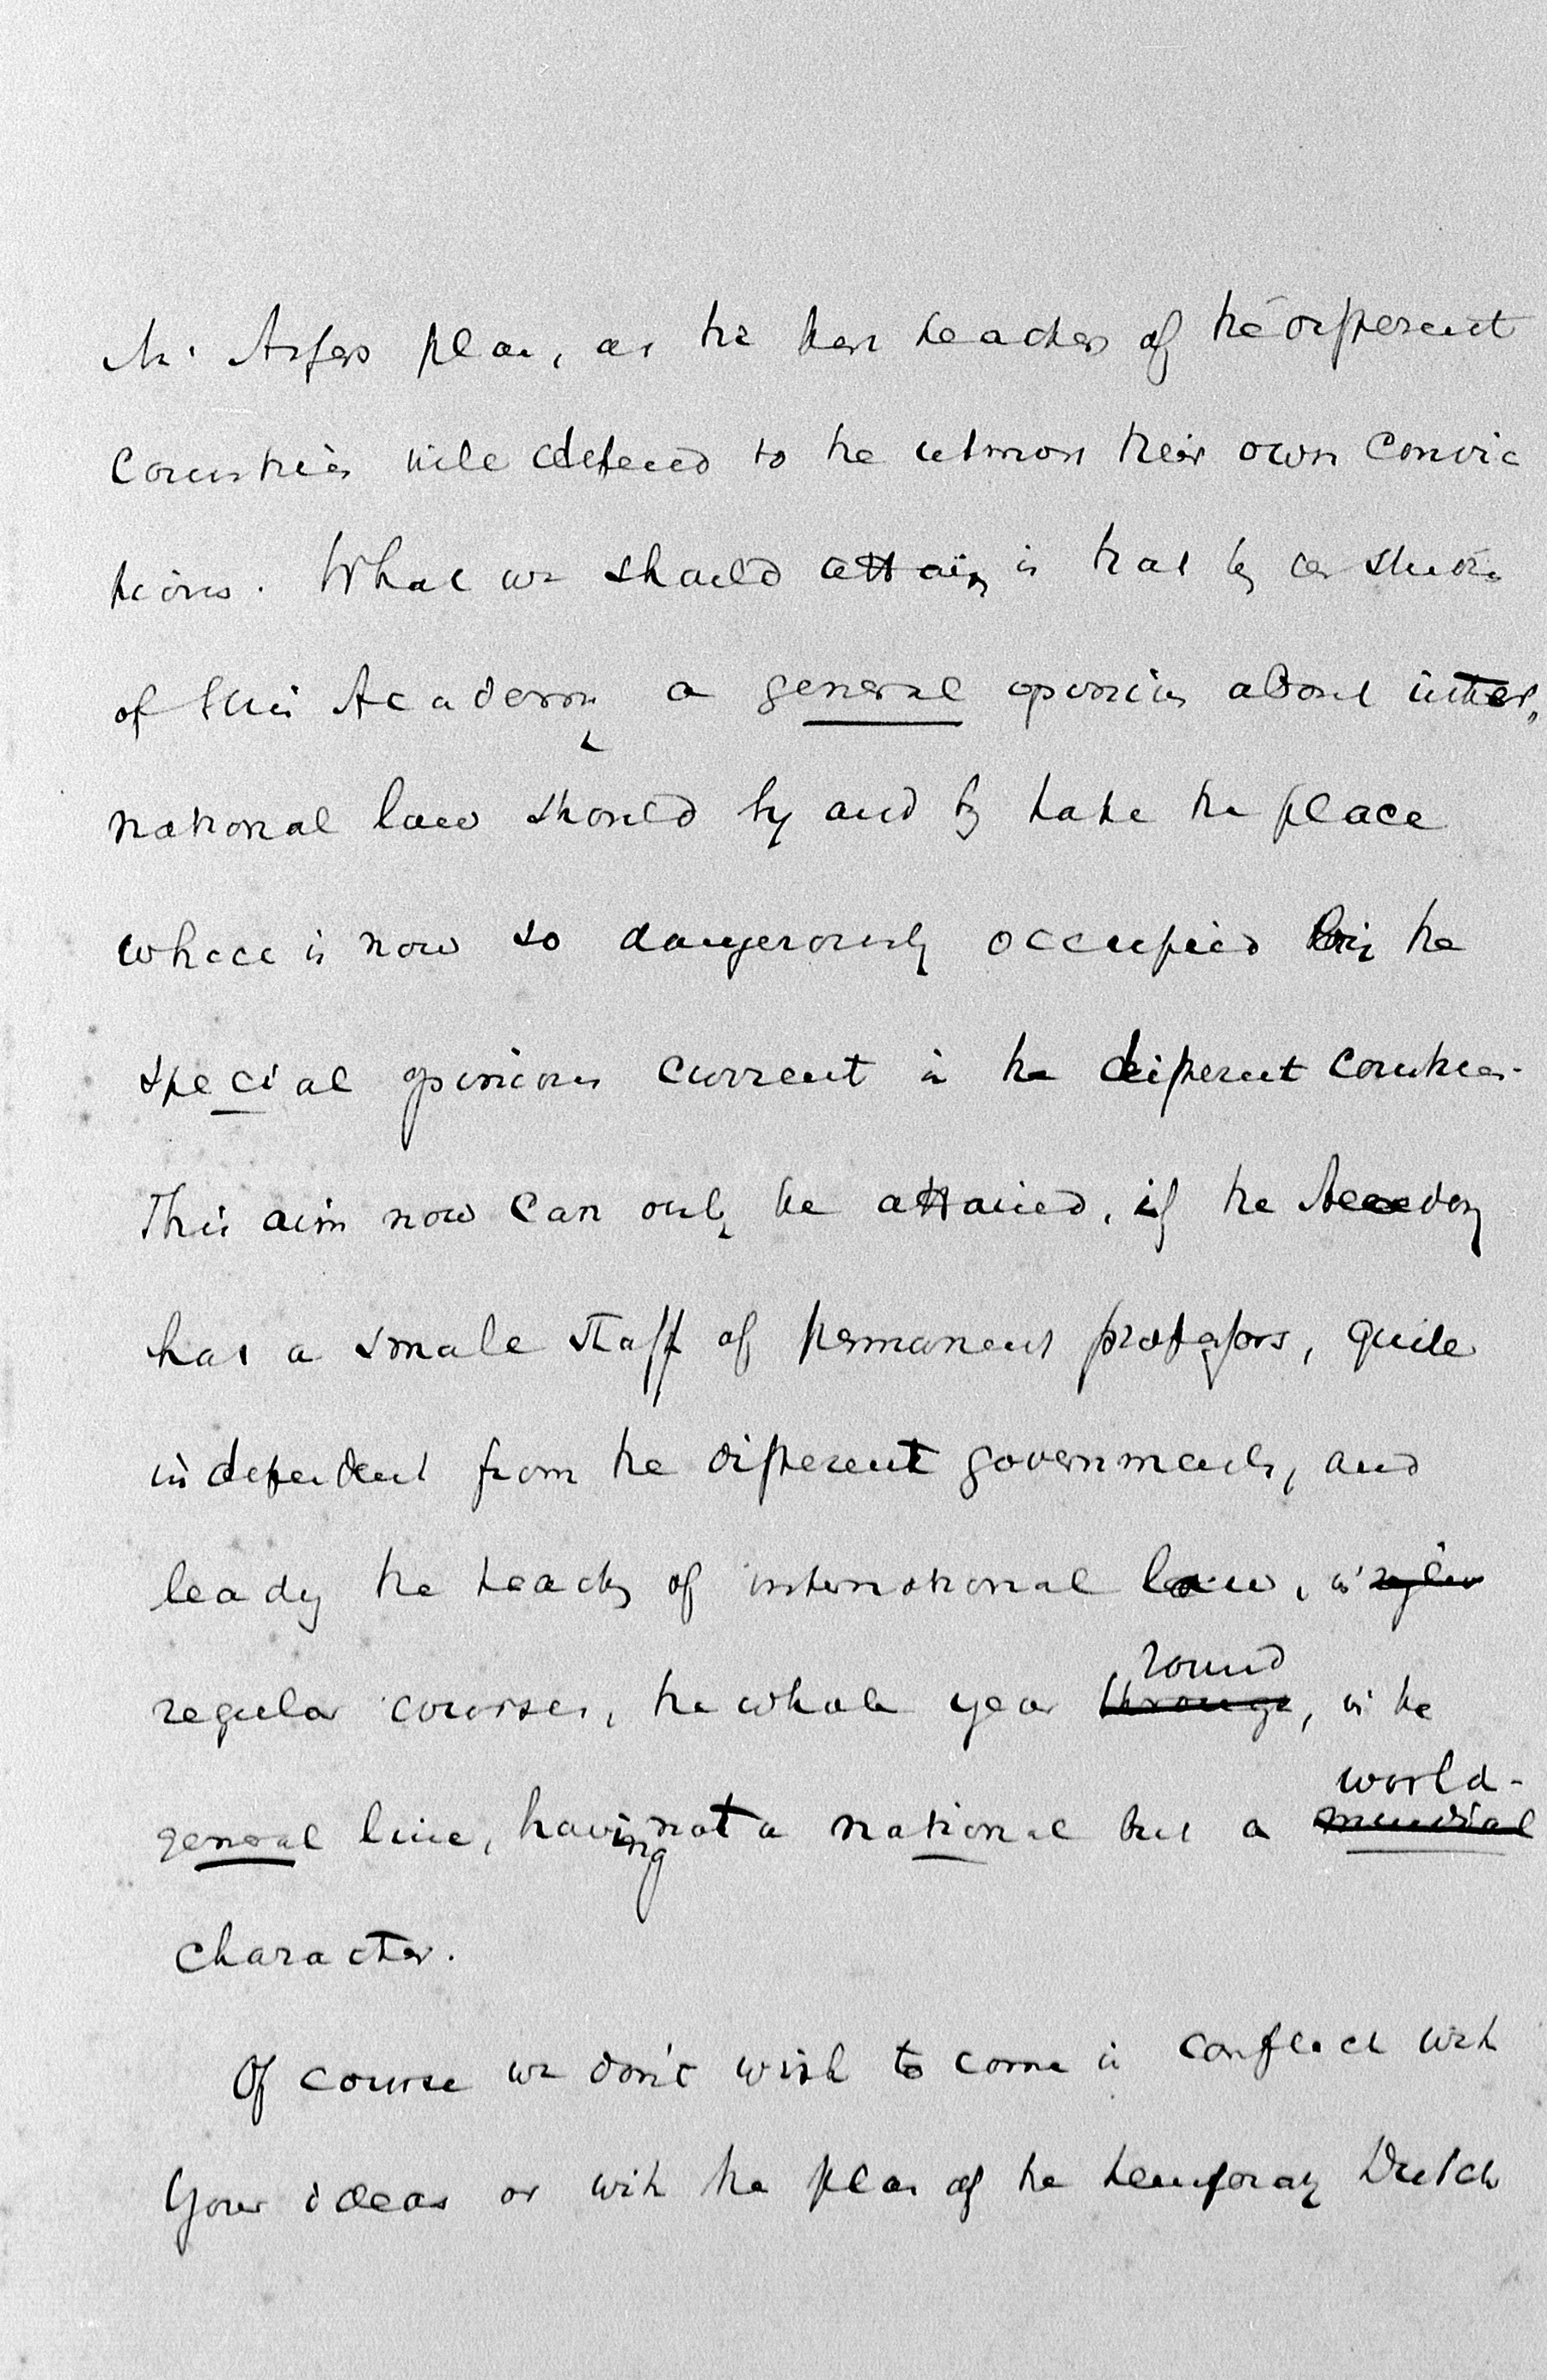 Mr. Assers plan, as the best teachers of the different
Countries will defend to the utmost their own Convic
tions. What we should attain is that by the studies
of this Academy a general opinion about inter„
national law should by and by take the place
which is now so dangerously occupied by the
special opinions current in the different Countries.
This aim now can only be attained, if the Academy
has a small staff of permanent professors, quite
independent from the different governments, and
leading the teaching of international law, in
regular courses, the whole year through, in the
round
general line, having not a national but a mundial
world-
character.
Of course we don't wish to come in conflict with
Your ideas or with the plan of the temporary Dutch